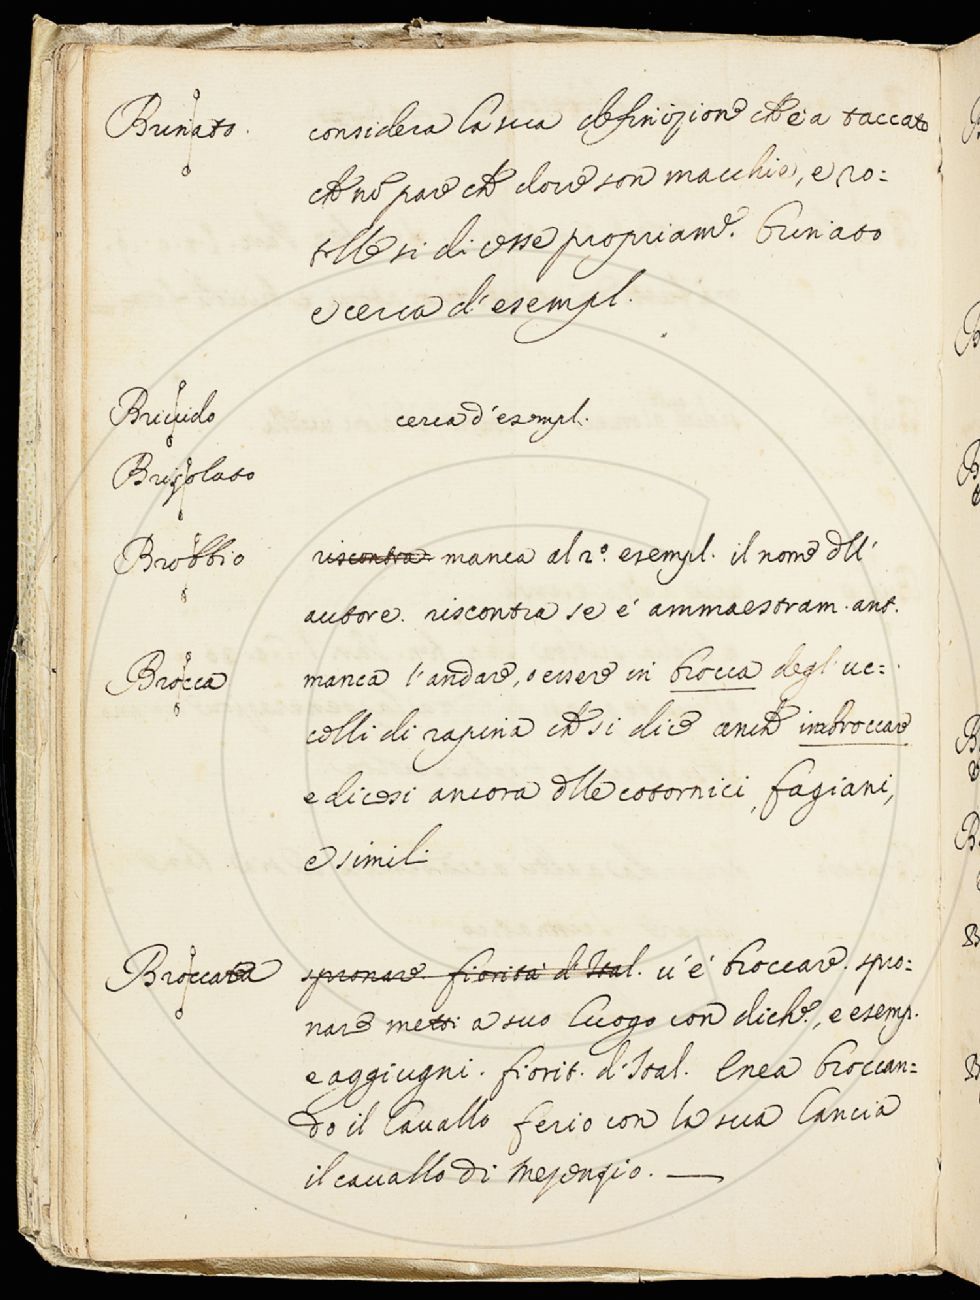 Brinato. considera la sua definizione che è a taccato
che nō pare che dove son macchie, e ro=
telle si dicesse propriam.e brinato
e cerca d'esempl.
Brivido cerca d'esempl.
Brizolato
Brobbio riscontra manca al 2.o esempl. il nome dell'
autore. riscontra se é ammaestram. ant.
Brocca manca l'andare, o essere in brocca degl'uc=
celli di rapina che si dice anche imbroccare
e dicesi ancora delle cotornici, fagiani,
e simili
Broccare spronare fiorita d'Ital. v'é broccare. spro=
nare metti a suo luogo con dich.e, e esemp.
e aggiugni. fiorit. d'Ital. Enea broccan=
do il Cavallo ferio con la sua lancia
il cavallo di Mezenzio.